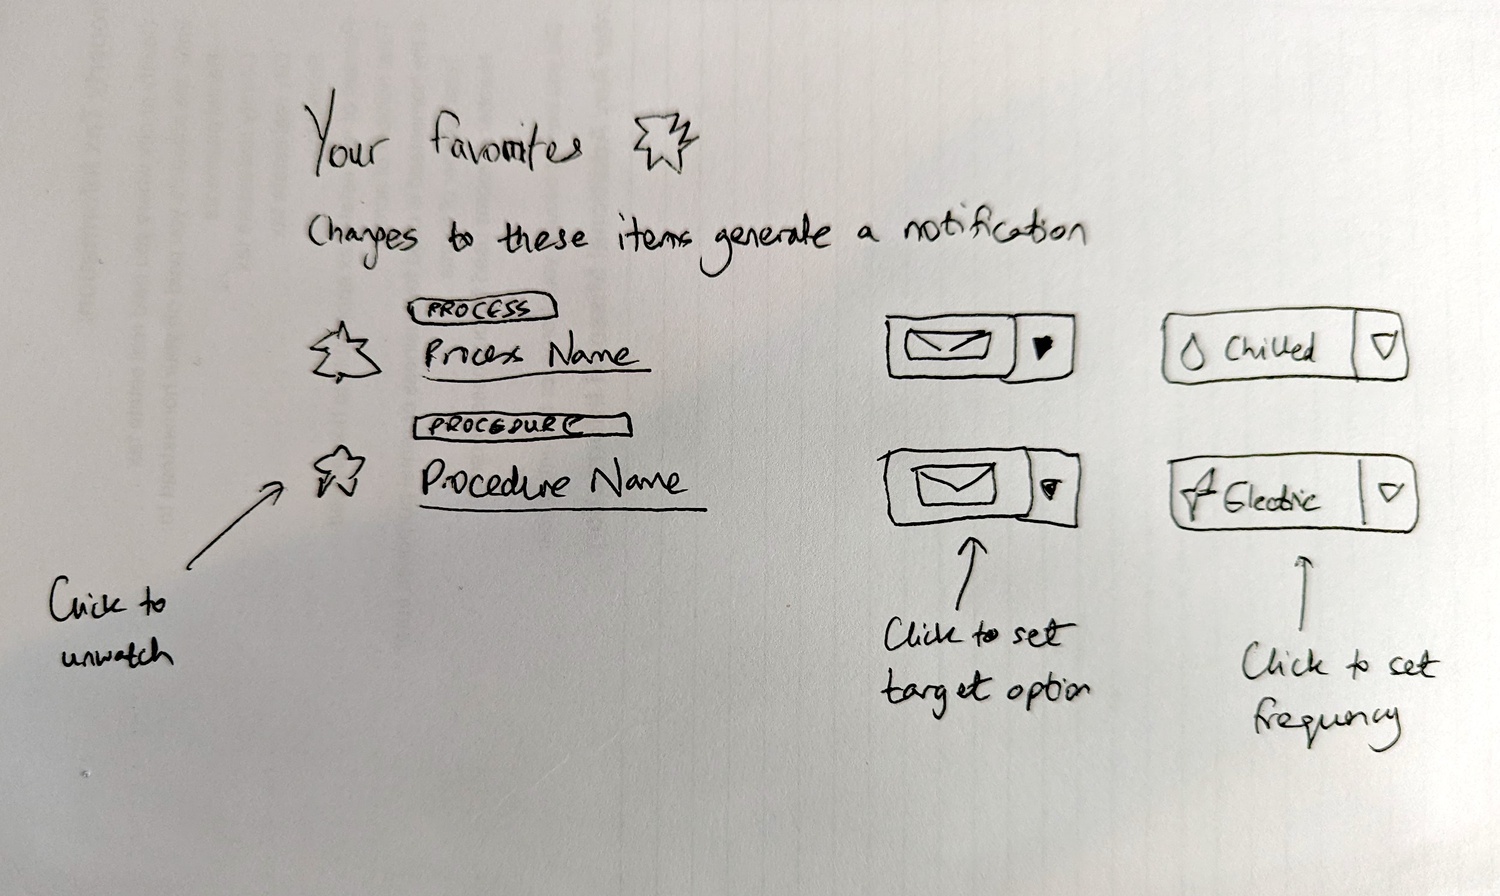 Your favorites
Changes to these items generate a notification
PROCESS
Process Name
Chilled
PROCEDURE
Procedure Name
Electric
Click to
unwatch
Click to set
target option
Click to set
frequncy